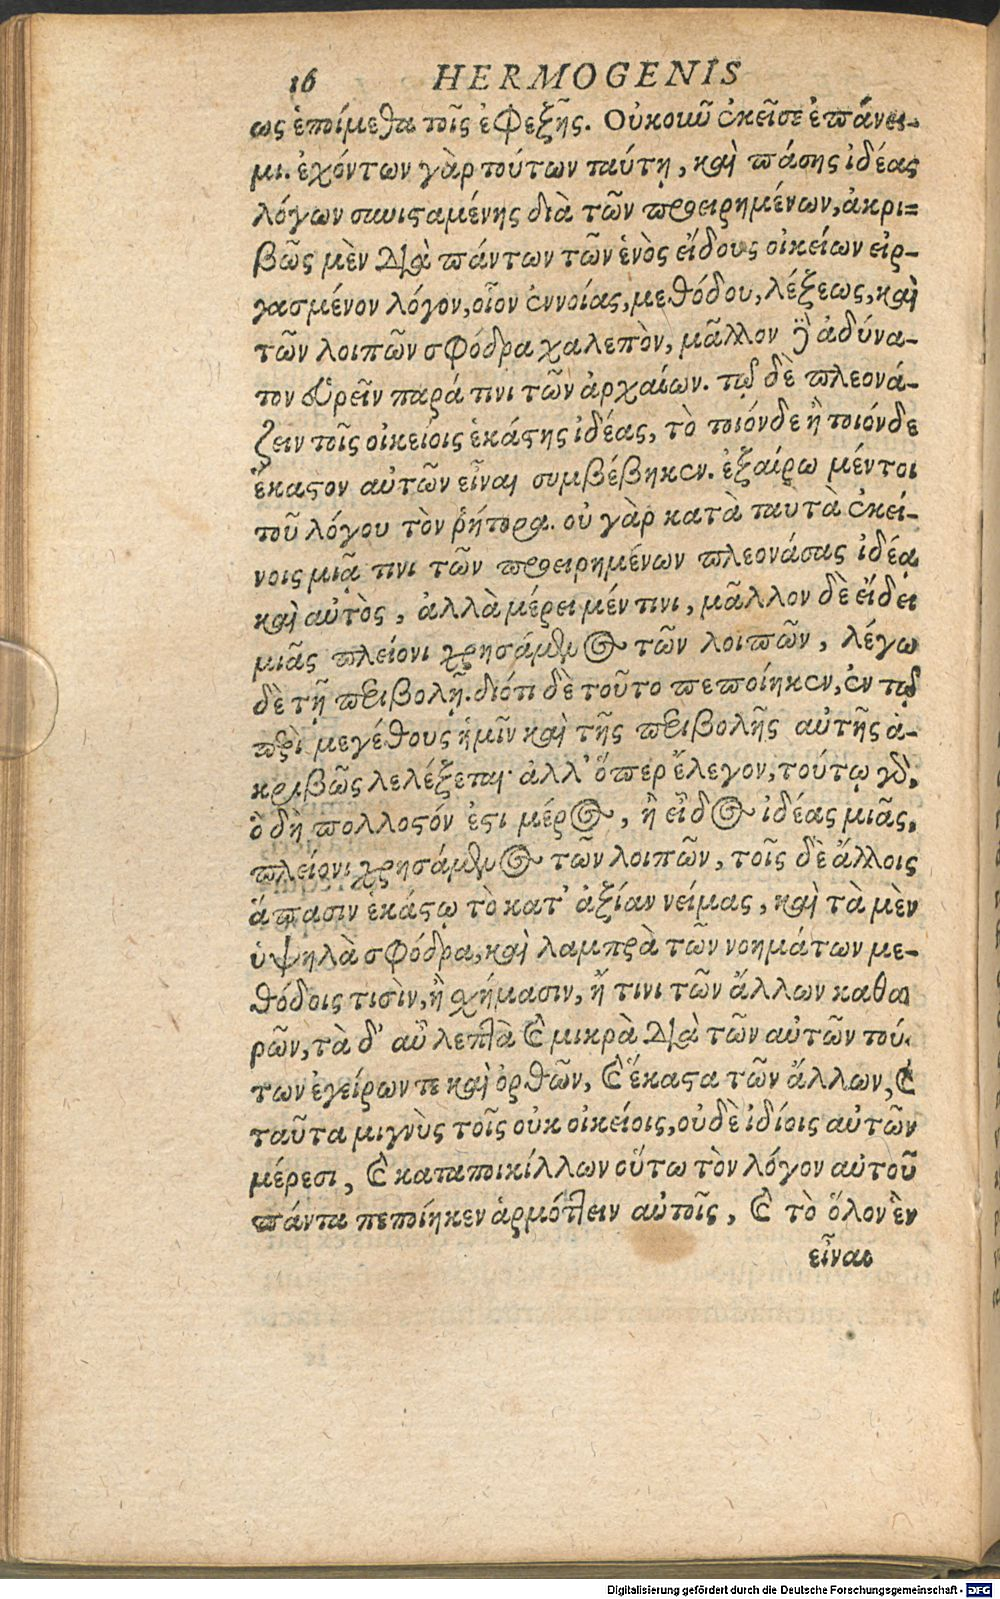 16 HERMOGENIS
ως ἑποίμεθα τοῖς ἐφεξῆς. Οὐκοῦν ἐκεῖσε ἐπάνει-
μι. ἐχόντων γὰρ τούτων ταύτῃ, καὶ πάσης ἰδέας
λόγων συνισταμένης διὰ τῶν προειρημένων, ἀκρι-
βῶς μὲν διὰ πάντων τῶν ἑνὸς εἴδους οἰκείων εἰρ-
γασμένον λόγον, οἷον ἐννοίας, μεθόδου, λέξεως, καὶ
τῶν λοιπῶν σφόδρα χαλεπὸν, μᾶλλον δὲ ἀδύνα-
τον εὑρεῖν παρά τινι τῶν ἀρχαίων. τῷ δὲ πλεονά-
ζειν τοῖς οἰκείοις ἑκάστης ἰδέας, τὸ ποιόνδε ἢ ποιόνδε
ἕκαστον αὐτῶν εἶναι συμβέβηκεν. ἐξαίρω μέντοι
τοῦ λόγου τὸν ῥήτορα. οὐ γὰρ κατὰ ταὐτὰ ἐκεί-
νοις μιᾷ τινι τῶν προειρημένων πλεονάσας ἰδέᾳ
καὶ αὐτὸς, ἀλλὰ μέρει μέν τινι, μᾶλλον δὲ εἴδει
μιᾶς πλείονι χρησάμενος τῶν λοιπῶν, λέγω
δὲ τῇ περιβολῇ. διότι δὲ τοῦτο πεποίηκεν, ἐν τῷ
περὶ μεγέθους ἡμῖν καὶ τῆς περιβολῆς αὐτῆς ἀ-
κριβῶς λελέξεται· ἀλλ' ὅπερ ἔλεγον, τούτῳ γὰρ,
ὃ δὴ πολλοστόν ἐστι μέρος, ἢ εἶδος ἰδέας μιᾶς,
πλείονι χρησάμενος τῶν λοιπῶν, τοῖς δὲ ἄλλοις
ἅπασιν ἑκάστῳ τὸ κατ' ἀξίαν νείμας, καὶ τὰ μὲν
ὑψηλὰ σφόδρα, καὶ λαμπρὰ τῶν νοημάτων με-
θόδοις τισὶν, ἢ σχήμασιν, ἤ τινι τῶν ἄλλων καθαι
ρῶν, τὰ δ' αὖ λεπτὰ καὶ μικρὰ διὰ τῶν αὐτῶν τού-
των ἐγείρων τε καὶ ὀρθῶν, καὶ ἕκαστα τῶν ἄλλων, καὶ
ταῦτα μιγνὺς τοῖς οὐκ οἰκείοις, οὐδὲ ἰδίοις αὐτῶν
μέρεσι, καὶ καταποικίλλων οὕτω τὸν λόγον αὐτοῦ
πάντα πεποίηκεν ἁρμόττειν αὐτοῖς, καὶ τὸ ὅλον ἓν
εἶναι
Digitalisierung gefördert durch die Deutsche Forschungsgemeinschaft - DFG